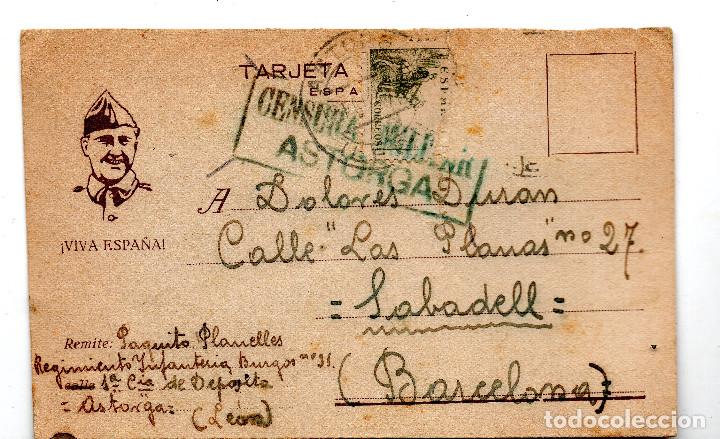 TARJETA
ESPA
CENSURA MILITAR
ASTORGA
CORREOS
¡VIVA ESPAÑA!
A Dolores Duran
Calle "Las Planas" nº 27.
= Sabadell =
(Barcelona)
Remite: Paquito Planelles
Regimiento Infanteria Burgos nº 31
1ª Cia de Deposito
= Astorga =
(León)
todocoleccion